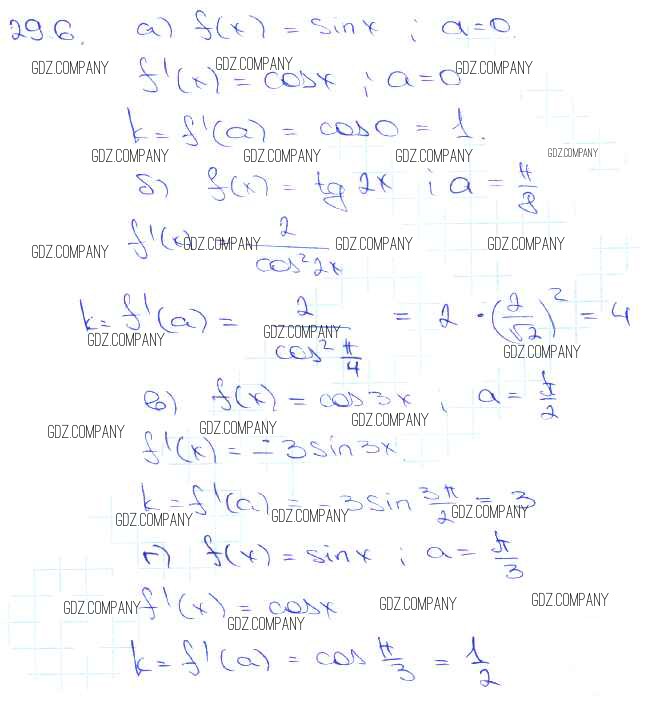 29.6. а) f(x) = sin x ; a=0.
GDZ.COMPANY GDZ.COMPANY GDZ.COMPANY
f'(x) = cos x ; a=0
k = f'(a) = cos 0 = 1.
GDZ.COMPANY GDZ.COMPANY GDZ.COMPANY GDZ.COMPANY
б) f(x) = tg 2x ; a = π/8
GDZ.COMPANY GDZ.COMPANY GDZ.COMPANY GDZ.COMPANY
f'(x) = 2/cos²2x
k = f'(a) = 2/cos² π/4 = 2 · (2/√2)² = 4
GDZ.COMPANY GDZ.COMPANY GDZ.COMPANY
в) f(x) = cos 3x ; a = π/2
GDZ.COMPANY GDZ.COMPANY GDZ.COMPANY
f'(x) = -3 sin 3x
k = f'(a) = -3 sin 3π/2 = 3
GDZ.COMPANY GDZ.COMPANY GDZ.COMPANY
г) f(x) = sin x ; a = π/3
GDZ.COMPANY GDZ.COMPANY GDZ.COMPANY GDZ.COMPANY
f'(x) = cos x
k = f'(a) = cos π/3 = 1/2